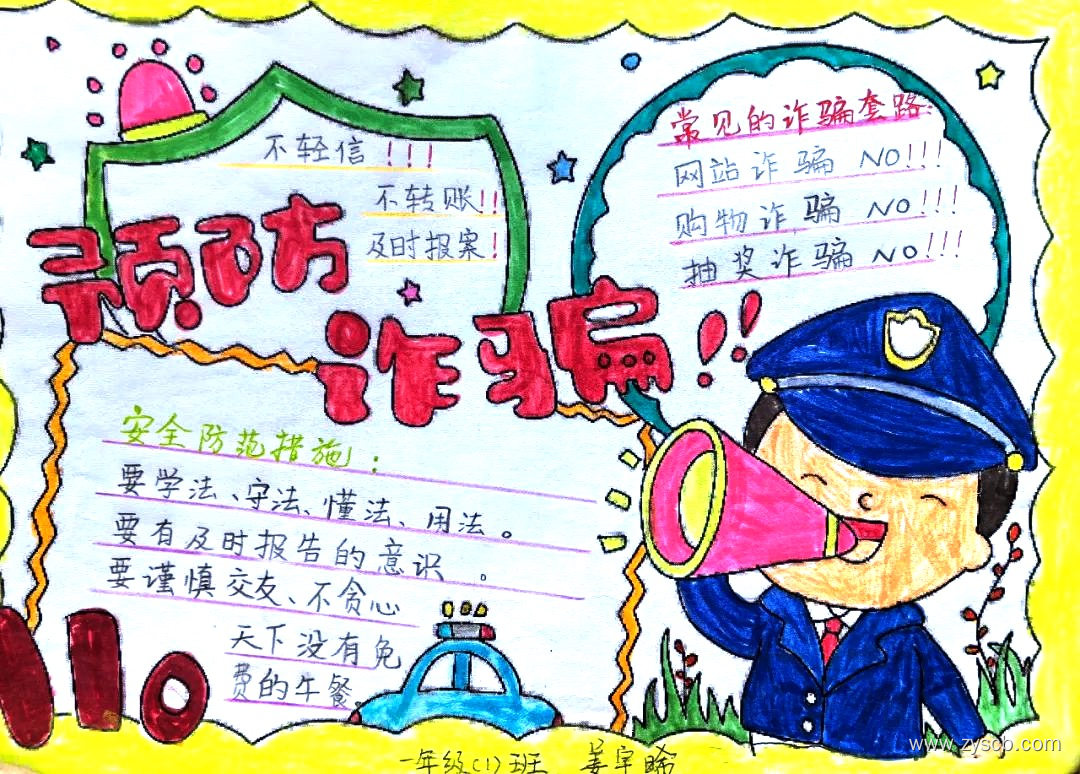 不轻信！！！
不转账！！
及时报案！
预防
诈骗！！
常见的诈骗套路：
网站诈骗 NO！！！
购物诈骗 NO！！！
抽奖诈骗 NO！！！
安全防范措施：
要学法、守法、懂法、用法。
要有及时报告的意识。
要谨慎交友、不贪心
天下没有免
费的午餐。
110
一年级(1)班 姜宇晞
www.zyscb.com